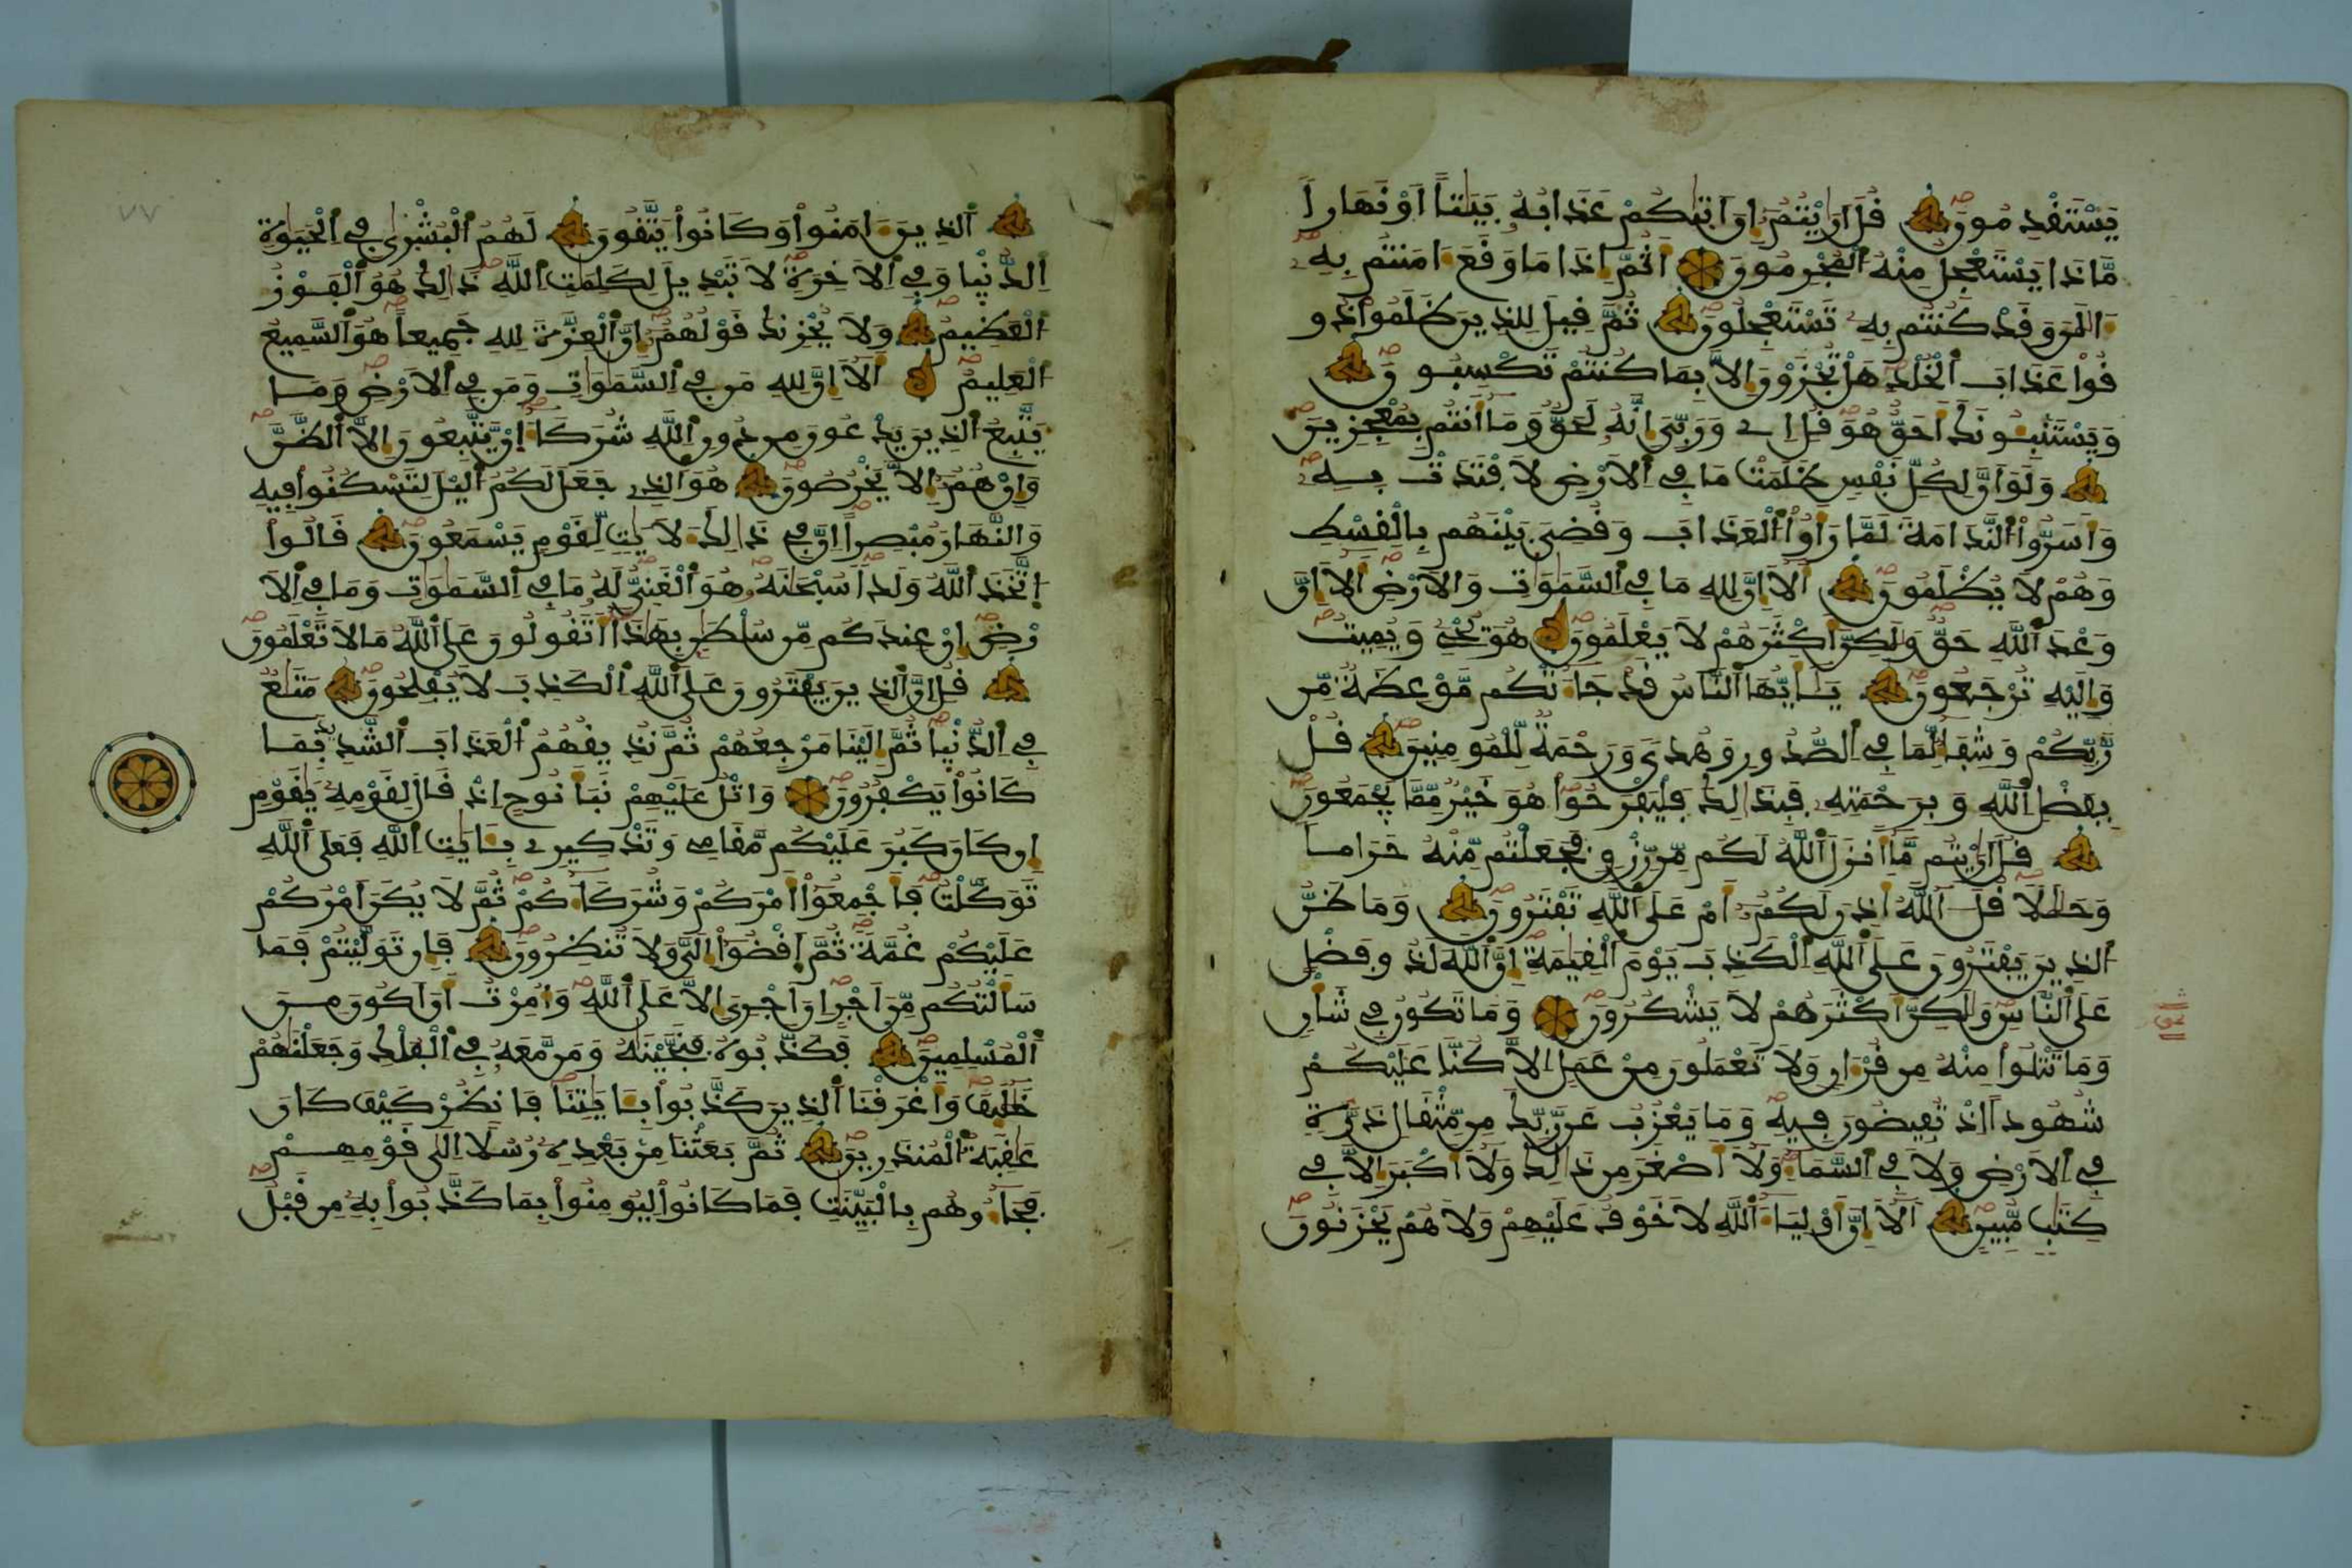 يَسْتَقْدِمُونَ قُلَ اَرَٰيْتُمُۥٓ إِنَ اَتٜيٰكُمْ عَذَابُهُۥ بَيَٰتاً اَوْ نَهَاراٗ
مَّاذَا يَسْتَعْجِلُ مِنْهُ اُ۬لْمُجْرِمُونَ أَثُمَّ إِذَا مَا وَقَعَ ءَامَنتُم بِهِۦٓ
ءَآلَٰنَ وَقَدْ كُنتُم بِهِۦ تَسْتَعْجِلُونَ ثُمَّ قِيلَ لِلذِينَ ظَلَمُواْ ذُو
قُواْ عَذَابَ اَ۬لْخُلْدِ هَلْ تُجْزَوْنَ إِلاَّ بِمَا كُنتُمْ تَكْسِبُونَ
وَيَسْتَنۢبِـُٔونَكَ أَحَقٌّ هُوَ قُلِ اِے وَرَبِّيَ إِنَّهُۥ لَحَقّٞ وَمَآ أَنتُم بِمُعْجِزِينَ
وَلَوَ اَنَّ لِكُلِّ نَفْسٖ ظَلَمَتْ مَا فِے اِ۬لَارْضِ لَافْتَدَتْ بِهِۦ
وَأَسَرُّواْ اُ۬لنَّدَامَةَ لَمَّا رَأَوُاْ اُ۬لْعَذَابَ وَقُضِيَ بَيْنَهُم بِالْقِسْطِ
وَهُمْ لَا يُظْلَمُونَ أَلَآ إِنَّ لِلهِ مَا فِے اِ۬لسَّمَٰوَٰتِ وَالَارْضِ أَلَآ إِنَّ
وَعْدَ اَ۬للَّهِ حَقّٞ وَلَٰكِنَّ أَكْثَرَهُمْ لَا يَعْلَمُونَ هُوَ يُحْيِۦ وَيُمِيتُ
وَإِلَيْهِ تُرْجَعُونَ يَٰٓأَيُّهَا اَ۬لنَّاسُ قَدْ جَآءَتْكُم مَّوْعِظَةٞ مِّن
رَّبِّكُمْ وَشِفَآءٞ لِّمَا فِے اِ۬لصُّدُورِ وَهُدىٗ وَرَحْمَةٞ لِّلْمُومِنِينَ قُلْ
بِفَضْلِ اِ۬للَّهِ وَبِرَحْمَتِهِۦ فَبِذَٰلِكَ فَلْيَفْرَحُواْ هُوَ خَيْرٞ مِّمَّا يَجْمَعُونَ
قُلَ اَرَٰيْتُم مَّآ أَنزَلَ اَ۬للَّهُ لَكُم مِّن رِّزْقٖ فَجَعَلْتُم مِّنْهُ حَرَاماٗ
وَحَلَٰلاٗ قُلَ ـ آللَّهُ أَذِنَ لَكُمُۥٓ أَمْ عَلَى اَ۬للَّهِ تَفْتَرُونَ وَمَا ظَنُّ
اُ۬لذِينَ يَفْتَرُونَ عَلَى اَ۬للَّهِ اِ۬لْكَذِبَ يَوْمَ اَ۬لْقِيَٰمَةِ إِنَّ اَ۬للَّهَ لَذُو فَضْلٍ
عَلَى اَ۬لنَّاسِ وَلَٰكِنَّ أَكْثَرَهُمْ لَا يَشْكُرُونَ وَمَا تَكُونُ فِے شَأْنٖ
وَمَا تَتْلُواْ مِنْهُ مِن قُرْءَانٖ وَلَا تَعْمَلُونَ مِنْ عَمَلٍ اِلاَّ كُنَّا عَلَيْكُمْ
شُهُوداً اِذْ تُفِيضُونَ فِيهِ وَمَا يَعْزُبُ عَن رَّبِّكَ مِن مِّثْقَالِ ذَرَّةٖ
فِے اِ۬لَارْضِ وَلَا فِے اِ۬لسَّمَآءِ وَلَآ أَصْغَرَ مِن ذَٰلِكَ وَلَآ أَكْبَرَ إِلاَّ فِے
كِتَٰبٖ مُّبِينٍ اَلَآ إِنَّ أَوْلِيَآءَ اَ۬للَّهِ لَا خَوْفٌ عَلَيْهِمْ وَلَا هُمْ يَحْزَنُونَ
ثمن
اَ۬لذِينَ ءَامَنُواْ وَكَانُواْ يَتَّقُونَ لَهُمُ اُ۬لْبُشْرٜيٰ فِے اِ۬لْحَيَوٰةِ
اِ۬لدُّنْيٜا وَفِے اِ۬لَاخِرَةِ لَا تَبْدِيلَ لِكَلِمَٰتِ اِ۬للَّهِ ذَٰلِكَ هُوَ اَ۬لْفَوْزُ
اُ۬لْعَظِيمُ وَلَا يُحْزِنكَ قَوْلُهُمُۥٓ إِنَّ اَ۬لْعِزَّةَ لِلهِ جَمِيعاً هُوَ اَ۬لسَّمِيعُ
اُ۬لْعَلِيمُ أَلَآ إِنَّ لِلهِ مَن فِے اِ۬لسَّمَٰوَٰتِ وَمَن فِے اِ۬لَارْضِ وَمَا
يَتَّبِعُ اُ۬لذِينَ يَدْعُونَ مِن دُونِ اِ۬للَّهِ شُرَكَآءَ اِ۪نْ يَّتَّبِعُونَ إِلاَّ اَ۬لظَّنَّ
وَإِنْ هُمُۥٓ إِلاَّ يَخْرُصُونَ هُوَ اَ۬لذِے جَعَلَ لَكُمُ اُ۬ليْلَ لِتَسْكُنُواْ فِيهِ
وَالنَّهَارَ مُبْصِراً اِنَّ فِے ذَٰلِكَ لَأٓيَٰتٖ لِّقَوْمٖ يَسْمَعُونَ قَالُواْ
اُ۪تَّخَذَ اَ۬للَّهُ وَلَداٗ سُبْحَٰنَهُۥ هُوَ اَ۬لْغَنِيُّ لَهُۥ مَا فِے اِ۬لسَّمَٰوَٰتِ وَمَا فِے اِ۬لَا
رْضِ إِنْ عِندَكُم مِّن سُلْطَٰنِۢ بِهَٰذَآ أَتَقُولُونَ عَلَى اَ۬للَّهِ مَا لَا تَعْلَمُونَ
قُلِ اِنَّ اَ۬لذِينَ يَفْتَرُونَ عَلَى اَ۬للَّهِ اِ۬لْكَذِبَ لَا يُفْلِحُونَ مَتَٰعٞ
فِے اِ۬لدُّنْيٜا ثُمَّ إِلَيْنَا مَرْجِعُهُمْ ثُمَّ نُذِيقُهُمُ اُ۬لْعَذَابَ اَ۬لشَّدِيدَ بِمَا
كَانُواْ يَكْفُرُونَ وَاتْلُ عَلَيْهِمْ نَبَأَ نُوحٍ اِذْ قَالَ لِقَوْمِهِۦ يَٰقَوْمِ
إِن كَانَ كَبُرَ عَلَيْكُم مَّقَامِے وَتَذْكِيرِے بِـَٔايَٰتِ اِ۬للَّهِ فَعَلَى اَ۬للَّهِ
تَوَكَّلْتُ فَأَجْمِعُوٓاْ أَمْرَكُمْ وَشُرَكَآءَكُمْ ثُمَّ لَا يَكُنَ اَمْرُكُمْ
عَلَيْكُمْ غُمَّةٗ ثُمَّ اَ۪قْضُوٓاْ إِلَيَّ وَلَا تُنظِرُونِ فَإِن تَوَلَّيْتُمْ فَمَا
سَأَلْتُكُم مِّنَ اَجْرٍ اِنَ اَجْرِيَ إِلاَّ عَلَى اَ۬للَّهِ وَأُمِرْتُ أَنَ اَكُونَ مِنَ
اَ۬لْمُسْلِمِينَ فَكَذَّبُوهُ فَنَجَّيْنَٰهُ وَمَن مَّعَهُۥ فِے اِ۬لْفُلْكِ وَجَعَلْنَٰهُمْ
خَلَٰٓئِفَ وَأَغْرَقْنَا اَ۬لذِينَ كَذَّبُواْ بِـَٔايَٰتِنَا فَانظُرْ كَيْفَ كَانَ
عَٰقِبَةُ اُ۬لْمُنذَرِينَ ثُمَّ بَعَثْنَا مِنۢ بَعْدِهِۦ رُسُلاً اِلَىٰ قَوْمِهِمْ
فَجَآءُوهُم بِالْبَيِّنَٰتِ فَمَا كَانُواْ لِيُومِنُواْ بِمَا كَذَّبُواْ بِهِۦ مِن قَبْلُ
٧٧